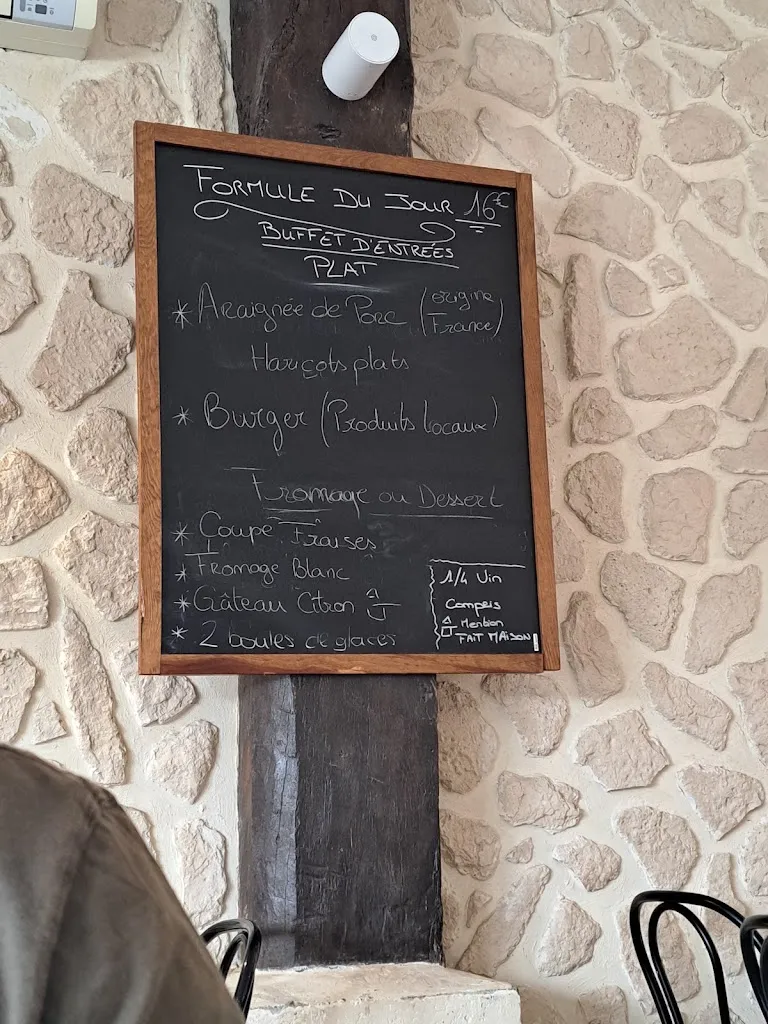 FORMULE DU JOUR 16€
BUFFET D'ENTRÉES
PLAT
* Araignée de Porc (origine France)
Haricots plats
* Burger (Produits locaux)
Fromage ou Dessert
* Coupe Fraises
* Fromage Blanc
* Gâteau Citron
* 2 boules de glaces
1/4 Vin
Compris
Mention
FAIT MAISON